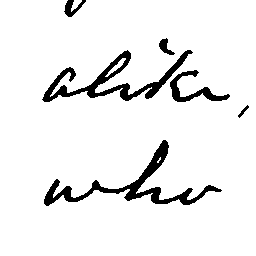 alike,
who